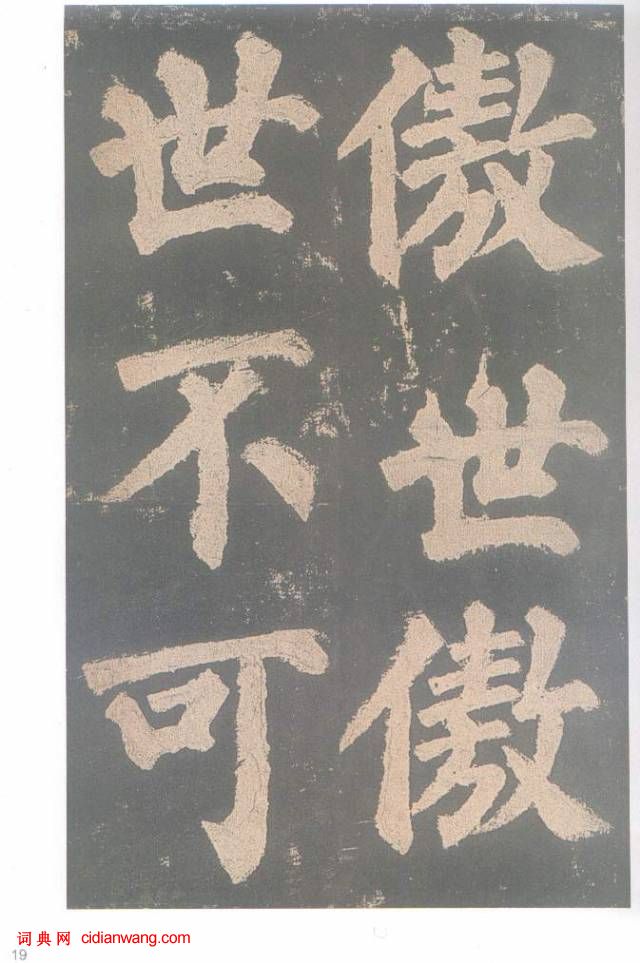 傲世傲
世不可
词典网 cidianwang.com
19